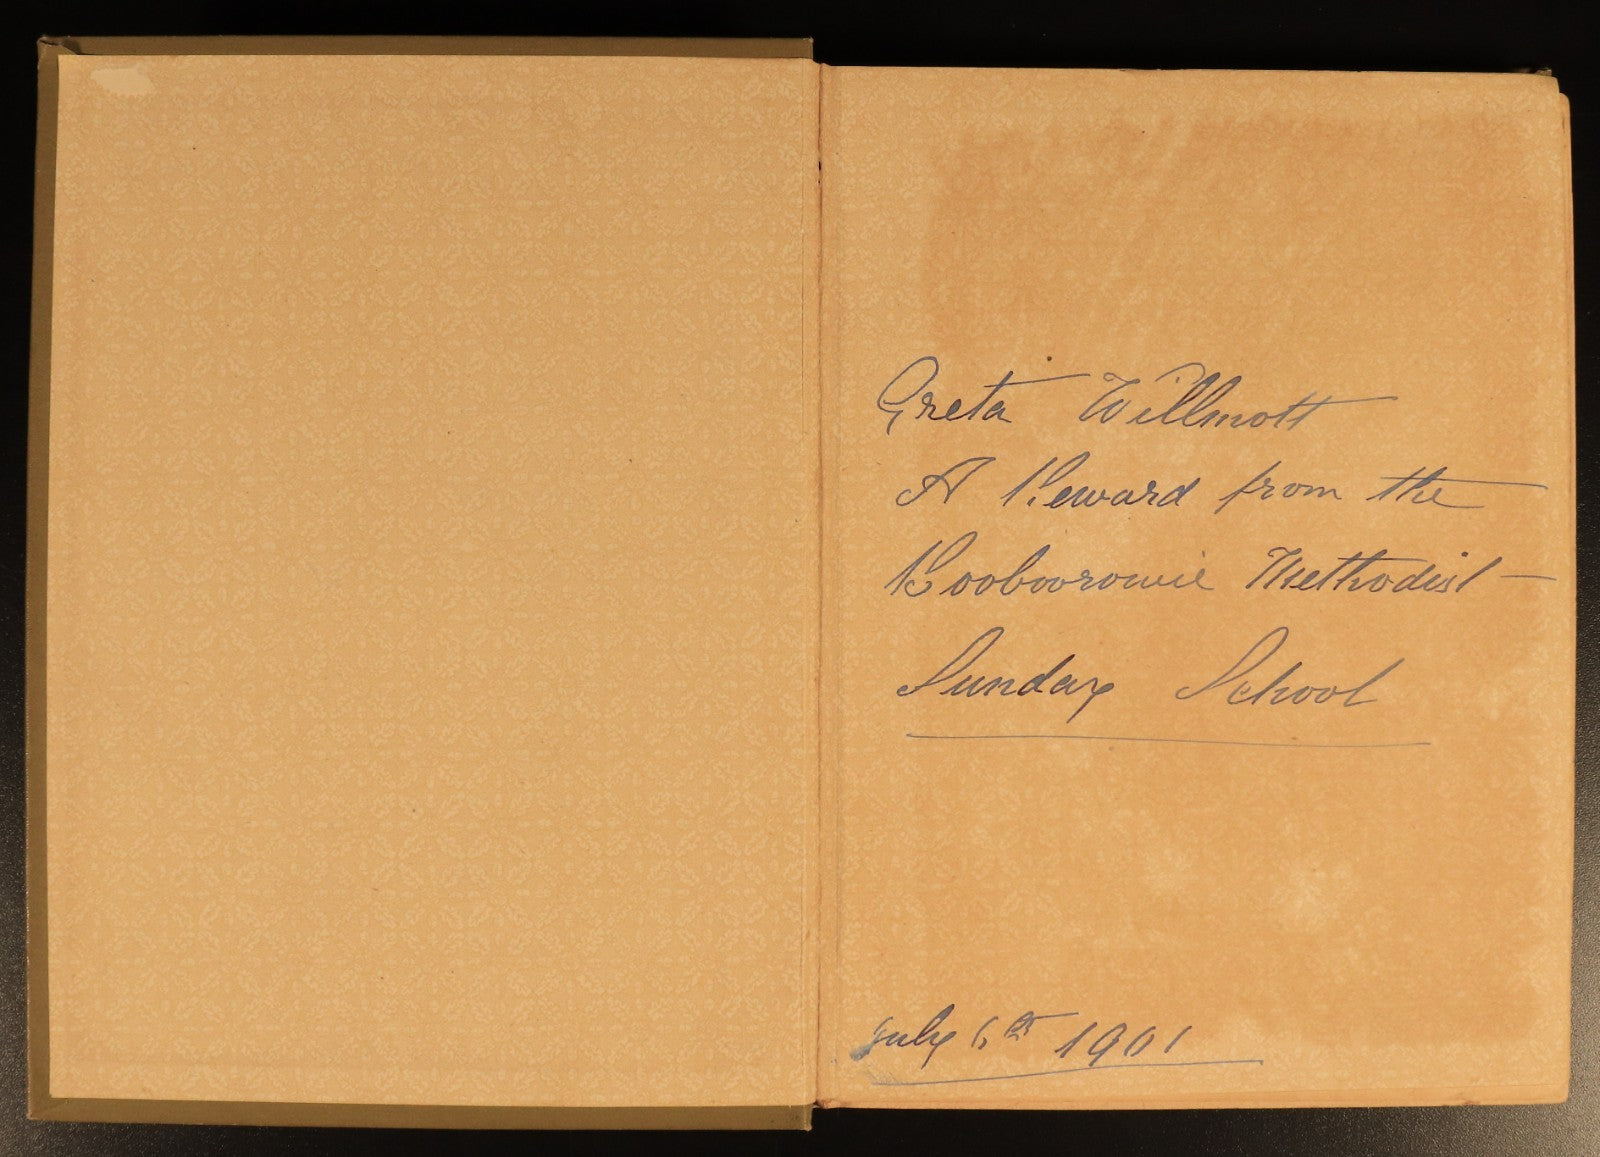 Greta Willmott
A Reward from the
Booboorowie Methodist
Sunday School
July 6th 1901